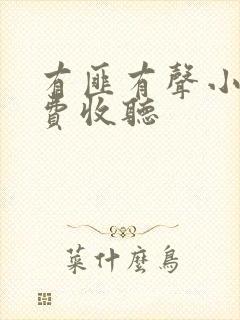 有匪有聲小
費收聽
菜什麼鳥